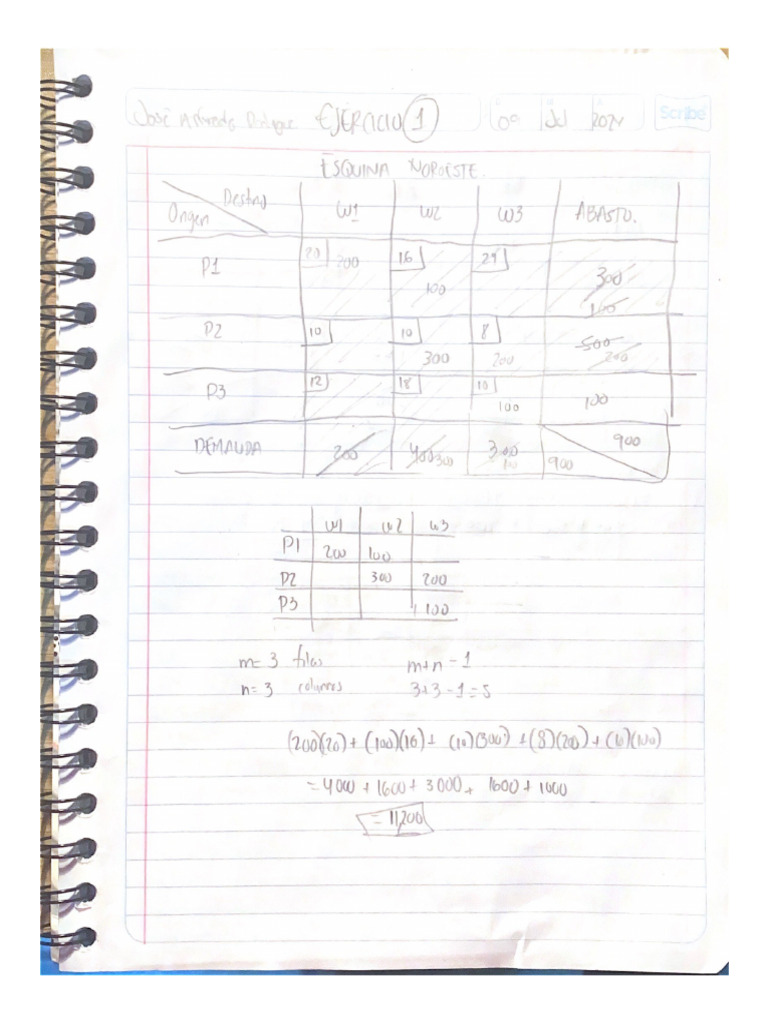 José Alfredo EJERCICIO 1 09 Jul 2024 Scribe
ESQUINA NOROESTE.
Destino
Origen W1 W2 W3 ABASTO.
P1 20 200 16 100 24 300 100
P2 10 10 300 8 200 500 200
P3 12 18 10 100 100
DEMANDA 200 400 300 300 100 900 900
W1 W2 W3
P1 200 100
P2 300 200
P3 100
m= 3 filas m+n - 1
n= 3 columnas 3+3-1=5
(200)(20) + (100)(16) + (10)(300) + (8)(200) + (10)(100)
= 4000 + 1600 + 3000 + 1600 + 1000
= 11,200